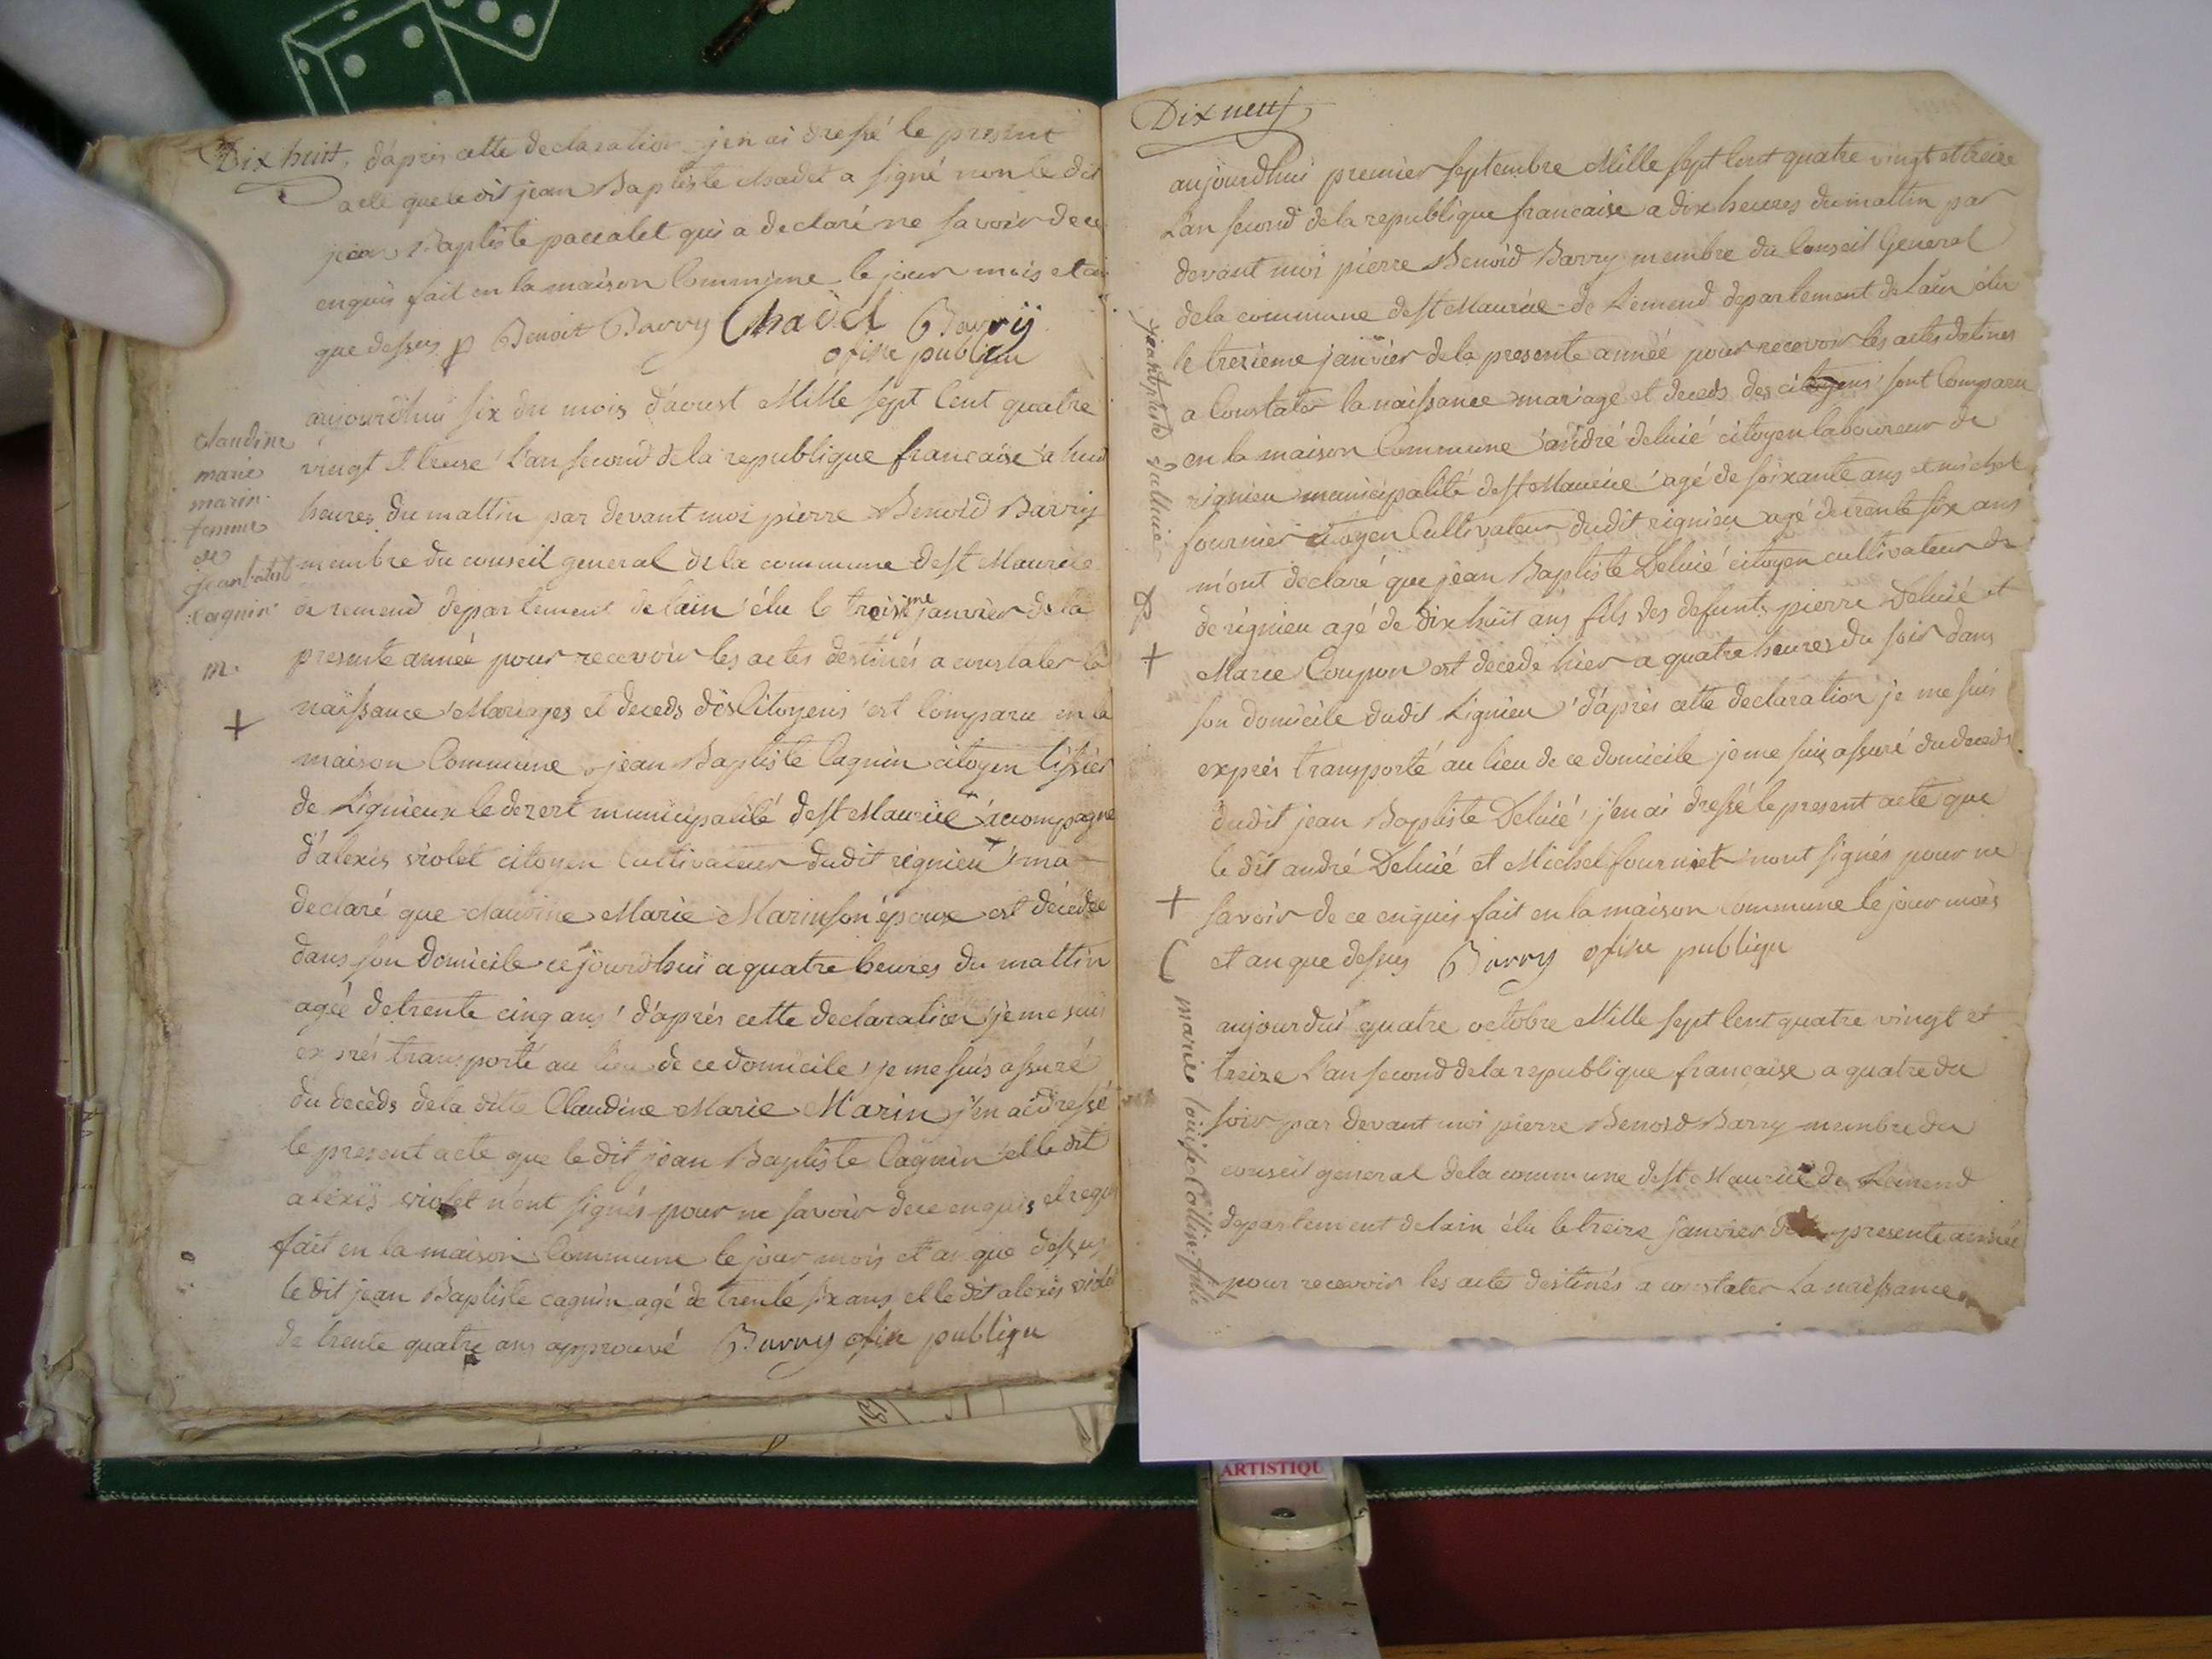 Dix huit. d'apris cette declaration j'en ai dressé le present
acte que le dit jean Baptiste Chadel a signé non le dit
jean Baptiste paccalet qui a declaré ne savoir de ce
enquis fait en la maison Commune le jour mois et an
que dessus Benoit Barry Chadel Barry
ofise publiqu
claudine
marie
marin
femme
de
jean batist
cagnin
m.
aujourdhui six du mois d'aoust Mille sept Cent quatre
vingt et treise L'an second de la republique francaise a huit
heures du mattin par devant moi pierre Benoid Barry
membre du conseil general de la commune de st Maurice
de remend departement de lain élu le treisieme janvier de la
presente année pour recevoir les actes destinés a constater la
naissance Mariages et deceds des Citoyens est Comparu en la
maison Commune jean Baptiste Cagnin citoyen tissier
de Rignieux le dezert municipalité de st Maurice accompagné
d'alexis violet citoyen Cultivateur dudit rignieu ma
declaré que claudine Marie Marin son épouse est décedée
dans son domicile ce jourdhui a quatre heures du mattin
agée de trente cinq ans d'aprés cette declaration je me suis
exprés transporté au lieu de ce domicile je me suis assuré
du decéds de la dite Claudine Marie Marin j'en ai dressé
le present acte que le dit jean Baptiste Cagnin et le dit
alexis violet n'ont signés pour ne savoir de ce enquis et requis
fait en la maison Commune le jour mois et an que dessus
le dit jean Baptiste cagnin agé de trente six ans et le dit alexis violet
de trente quatre ans approuvé Barry ofise publiqu
Dix neuf
aujourdhui premier septembre Mille sept Cent quatre vingt et treize
L'an second de la republique francaise a dix heures du mattin par
devant moi pierre Benoid Barry membre du Conseil General
de la commune de st Maurice de Remend departement de lain élu
le trezieme janvier de la presente année pour recevoir les actes detines
a Constater la naissance mariage et deceds des citoyens sont Comparu
en la maison Commune andré deluié citoyen laboureur de
rignieu municipalité de st Maurice agé de soixante ans et michel
fournier citoyen Cultivateur dudit rignieu agé de trente six ans
m'ont declaré que jean Baptiste Deluié citoyen cultivateur de
de rignieu agé de dix huit ans fils des defunts pierre Deluié et
Marie Coupon est decede hier a quatre heures du soir dans
son domicile dudit Rignieu d'aprés cette declaration je me suis
exprés transporté au lieu de ce domicile je me suis assuré du deceds
dudit jean Baptiste Deluié j'en ai dressé le present acte que
le dit andré Deluié et Michel fourniet n'ont signés pour ne
savoir de ce enquis fait en la maison commune le jour mois
et an que dessus Barry ofise publiqu
marie louise Collin fille
aujourdui quatre octobre Mille sept Cent quatre vingt et
treize L'an second de la republique francaise a quatre du
soir par devant moi pierre Benoid Barry membre du
conseil general de la commune de st Maurice de Remend
departement de lain élu le treize janvier presente année
pour recevoir les actes destinés a constater La naissance
ARTISTIQU